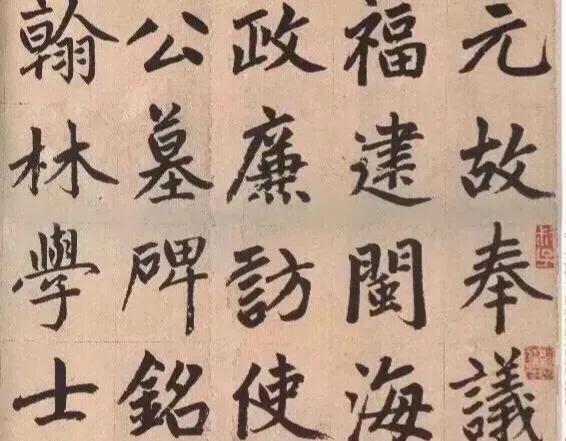 元故奉議
福建閩海
政廉訪使
公墓碑銘
翰林學士